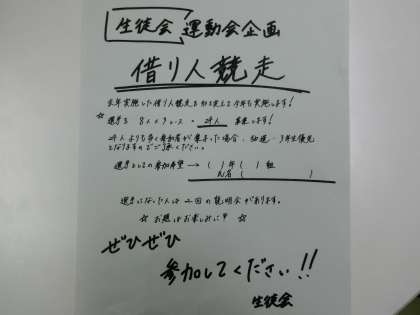 生徒会 運動会企画
借り人競走
去年実施した借り人競走を今年も実施します!
☆ 選手を 8人×3レース = 24人 募集します!
24人よりも多く参加者が集まった場合、抽選・3年生優先
となりますのでご了承ください。
選手としての参加希望→( )年( )組
氏名( )
選手になった人は 2回の説明会があります。
☆ お題はお楽しみに ☆
ぜひぜひ
参加してください!!
生徒会